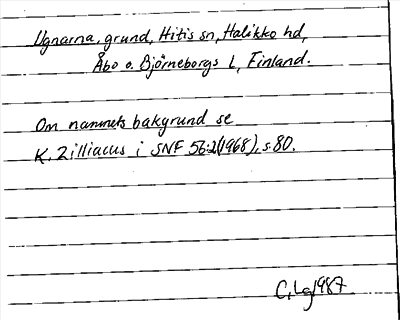 Ugnarna, grund, Hitis sn, Halikko hd,
Åbo o. Björneborgs l, Finland.
Om namnets bakgrund se
K. Zilliacus i SNF 56:2(1968), s. 80.
C, Lg 1987